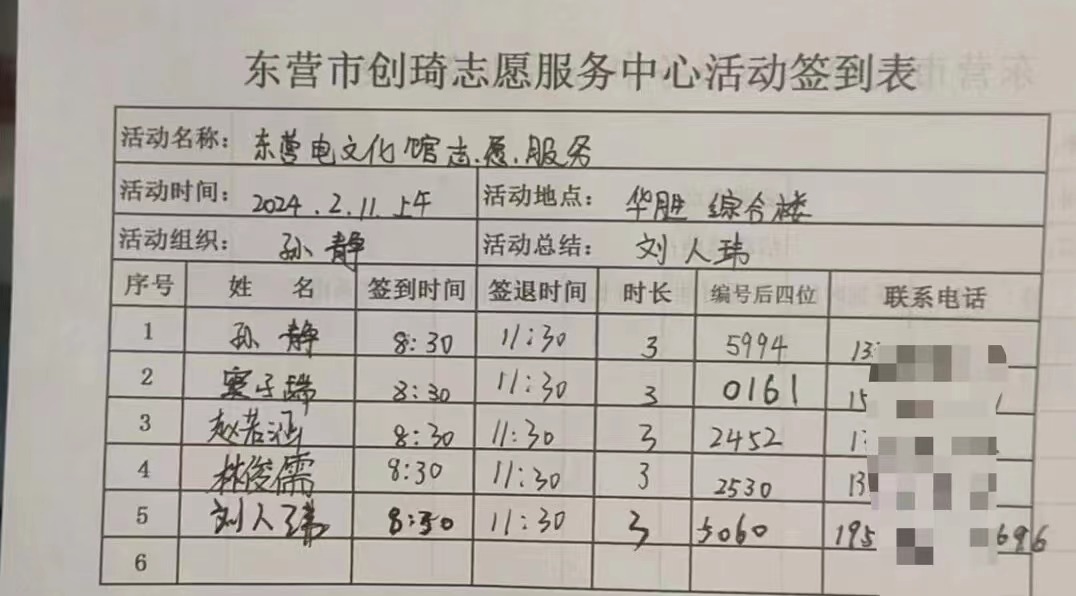 东营市创琦志愿服务中心活动签到表
活动名称: 东营电文化馆志.愿.服务
活动时间: 2024.2.11.上午 活动地点: 华胜 综合楼
活动组织: 孙静 活动总结: 刘人玮
序号 姓 名 签到时间 签退时间 时长 编号后四位 联系电话
1 孙静 8:30 11:30 3 5994 13
2 子瑞 8:30 11:30 3 0161 15
3 赵若涵 8:30 11:30 3 2452 1
4 林俊儒 8:30 11:30 3 2530 13
5 刘人玮 8:30 11:30 3 5060 195 696
6